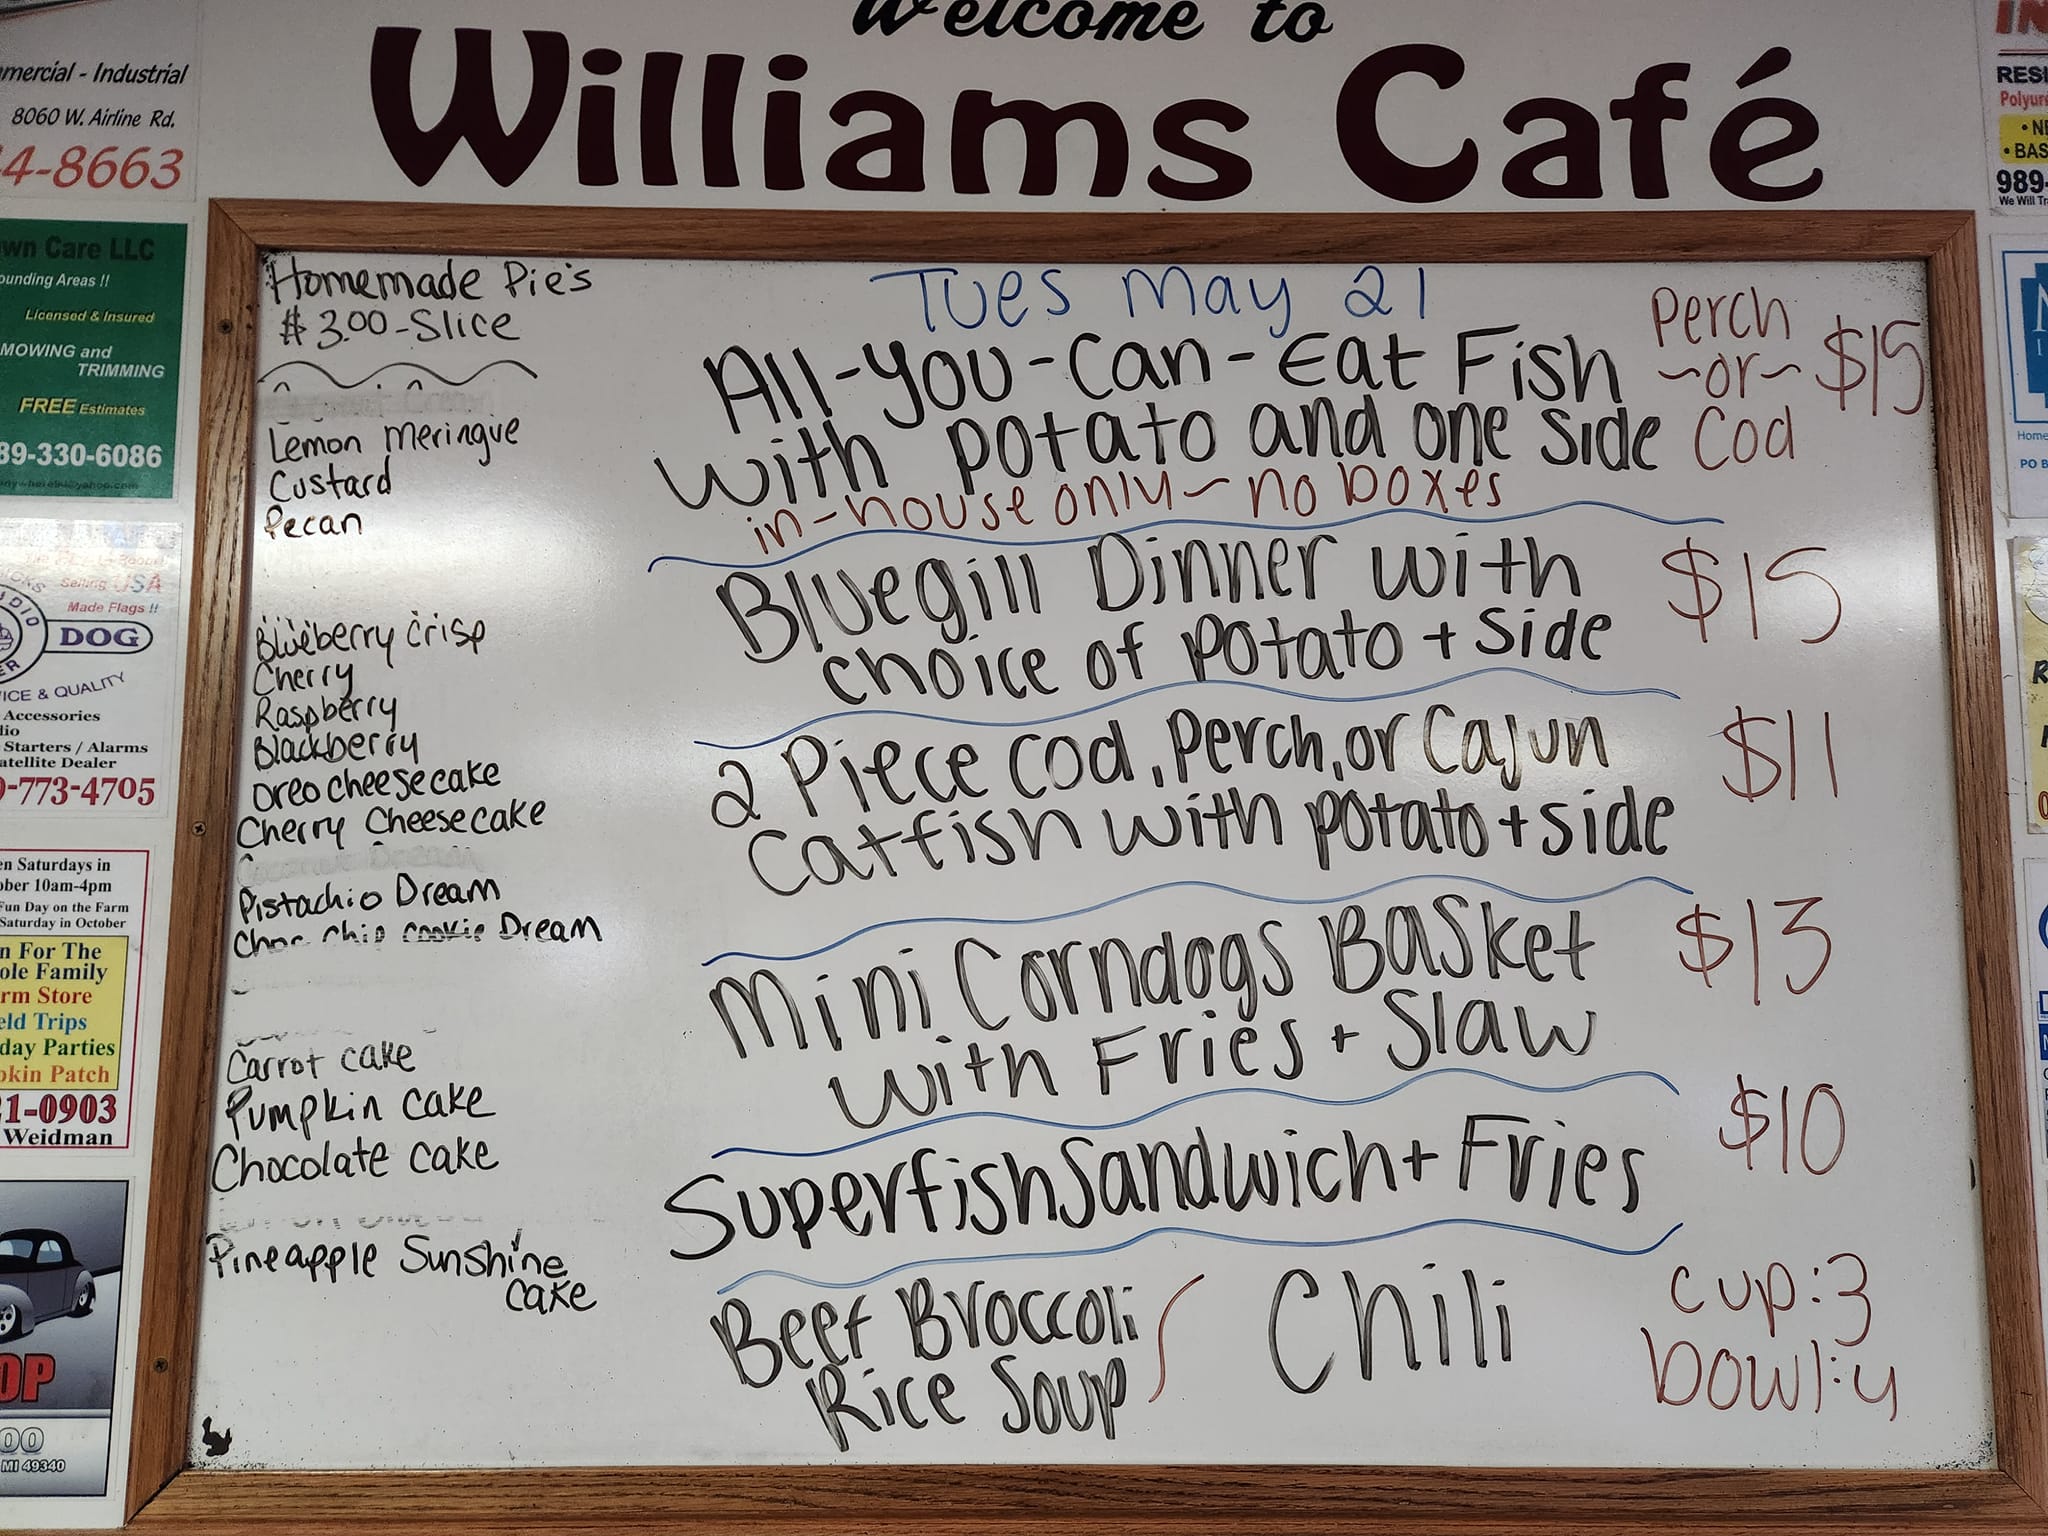 Welcome to
Williams Café
mercial - Industrial
8060 W. Airline Rd.
4-8663
wn Care LLC
ounding Areas !!
Licensed & Insured
MOWING and
TRIMMING
FREE Estimates
89-330-6086
Selling USA
Made Flags !!
DOG
ICE & QUALITY
Accessories
dio
Starters / Alarms
atellite Dealer
9-773-4705
en Saturdays in
ober 10am-4pm
Fun Day on the Farm
Saturday in October
n For The
ole Family
rm Store
eld Trips
day Parties
pkin Patch
21-0903
Weidman
OP
00
MI 49340
Homemade Pie's
$3.00-Slice
Lemon Meringue
Custard
Pecan
Blueberry Crisp
Cherry
Raspberry
Blackberry
Oreo cheesecake
Cherry Cheesecake
Pistachio Dream
Choc Chip Cookie Dream
Carrot cake
Pumpkin cake
Chocolate cake
Pineapple Sunshine
cake
Tues May 21
All-you-can-Eat Fish
with potato and one side
Perch
~or~ $15
Cod
in-house only~ no boxes
Bluegill Dinner with
choice of potato + side
$15
2 Piece Cod, Perch, or Cajun
Catfish with potato + side
$11
Mini Corndogs Basket
with Fries + Slaw
$13
Superfish Sandwich + Fries
$10
Beef Broccoli
Rice Soup
Chili
cup:3
bowl:4
RESI
Polyure
• NE
• BAS
989-
We Will Tr
Home
PO B